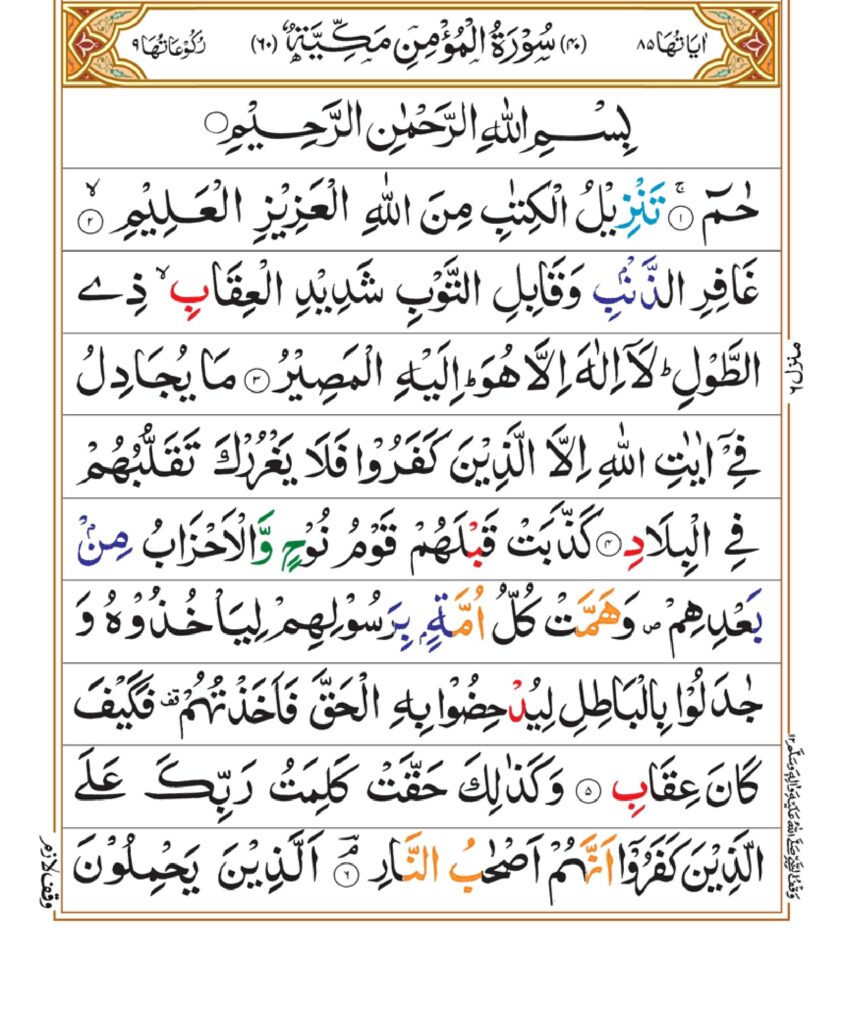 اٰيَاتُهَا ٨٥ (٤٠) سُوْرَةُ الْمُؤْمِنِ مَكِّيَّةٌ (٦٠) رُكُوْعَاتُهَا ٩
بِسْمِ اللّٰهِ الرَّحْمٰنِ الرَّحِيْمِ
حٰمٓ ۚ ﴿١﴾ تَنْزِيْلُ الْكِتٰبِ مِنَ اللّٰهِ الْعَزِيْزِ الْعَلِيْمِ ۙ ﴿٢﴾
غَافِرِ الذَّنْۢبِ وَقَابِلِ التَّوْبِ شَدِيْدِ الْعِقَابِ ۙ ذِى
الطَّوْلِ ؕ لَاۤ اِلٰهَ اِلَّا هُوَ ؕ اِلَيْهِ الْمَصِيْرُ ﴿٣﴾ مَا يُجَادِلُ
فِىْۤ اٰيٰتِ اللّٰهِ اِلَّا الَّذِيْنَ كَفَرُوْا فَلَا يَغْرُرْكَ تَقَلُّبُهُمْ
فِى الْبِلَادِ ﴿٤﴾ كَذَّبَتْ قَبْلَهُمْ قَوْمُ نُوْحٍ وَّالْاَحْزَابُ مِنْۢ
بَعْدِهِمْ ۪ وَهَمَّتْ كُلُّ اُمَّةٍۭ بِرَسُوْلِهِمْ لِيَاْخُذُوْهُ وَ
جٰدَلُوْا بِالْبَاطِلِ لِيُدْحِضُوْا بِهِ الْحَقَّ فَاَخَذْتُهُمْ قف فَكَيْفَ
كَانَ عِقَابِ ﴿٥﴾ وَكَذٰلِكَ حَقَّتْ كَلِمَتُ رَبِّكَ عَلَى
الَّذِيْنَ كَفَرُوْۤا اَنَّهُمْ اَصْحٰبُ النَّارِ ۘ ﴿٦﴾ اَلَّذِيْنَ يَحْمِلُوْنَ
منزل ٦
وقف النبي صلى الله عليه واله وسلم ١٢
وقف لازم